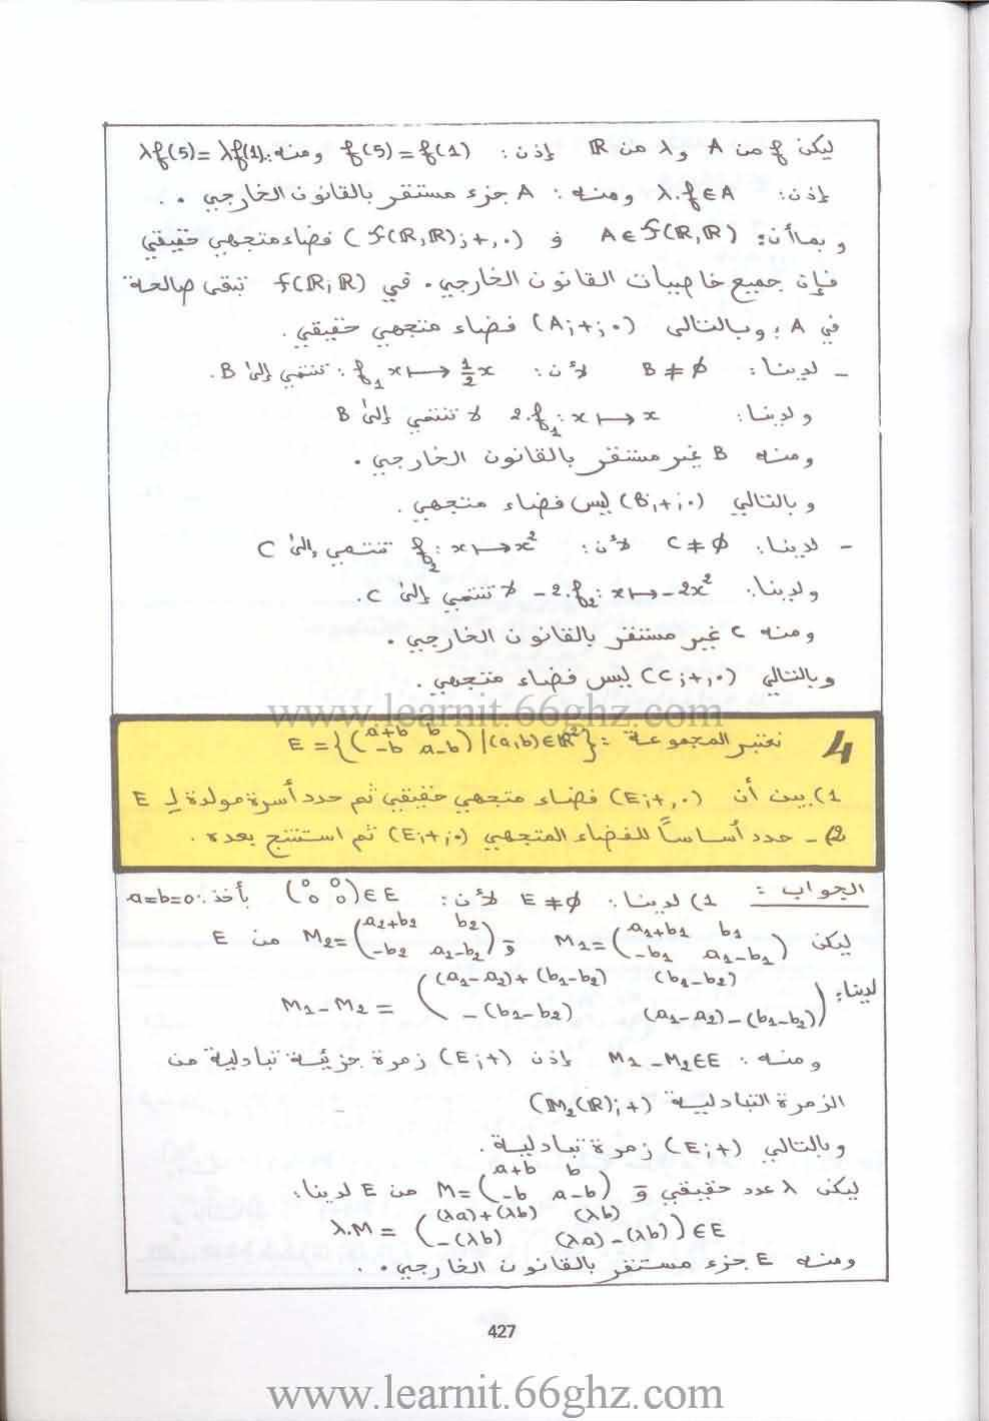 ليكن f من A و λ من ℝ إذن : f(5)=f(1) ومنه: λf(5)=λf(1)
إذن: λ.f∈A ومنه : A جزء مستقر بالقانون الخارجي .
و بما أن: A∈ℱ(ℝ,ℝ) و (ℱ(ℝ,ℝ);+,.) فضاء متجهي حقيقي
فإن جميع خاصيات القانون الخارجي . في ℱ(ℝ;ℝ) تبقى صالحة
في A ; وبالتالي (A;+;.) فضاء متجهي حقيقي .
- لدينا : B≠∅ لأن : f₁: x⟼½x تنتمي إلى B.
ولدينا: 2.f₁: x⟼x لا تنتمي إلى B
ومنه B غير مستقر بالقانون الخارجي .
و بالتالي (B;+;.) ليس فضاء متجهي .
- لدينا: C≠∅ لأن : f₂: x⟼x² تنتمي إلى C
ولدينا: -2.f₂: x⟼-2x² لا تنتمي إلى C.
ومنه C غير مستقر بالقانون الخارجي .
وبالتالي (C;+,.) ليس فضاء متجهي .
www.learnit.66ghz.com
4 نعتبر المجموعة : E={(a+b b ; -b a-b) |(a,b)∈ℝ²}
1) بين أن (E;+,.) فضاء متجهي حقيقي ثم حدد أسرة مولدة لـ E
2) - حدد أساساً للفضاء المتجهي (E;+;.) ثم استنتج بعده .
الجواب : 1) لدينا : E≠∅ لأن : (0 0 ; 0 0)∈E بأخذ: a=b=0
ليكن M₁=(a₁+b₁ b₁ ; -b₁ a₁-b₁) و M₂=(a₂+b₂ b₂ ; -b₂ a₂-b₂) من E
لدينا: M₁-M₂ = ((a₁-a₂)+(b₁-b₂) (b₁-b₂) ; -(b₁-b₂) (a₁-a₂)-(b₁-b₂))
ومنه : M₁-M₂∈E إذن (E;+) زمرة جزئية تبادلية من
الزمرة التبادلية (M₂(ℝ);+)
وبالتالي (E;+) زمرة تبادلية.
ليكن λ عدد حقيقي و M=(a+b b ; -b a-b) من E لدينا:
λ.M = ((λa)+(λb) (λb) ; -(λb) (λa)-(λb))∈E
ومنه E جزء مستقر بالقانون الخارجي .
427
www.learnit.66ghz.com